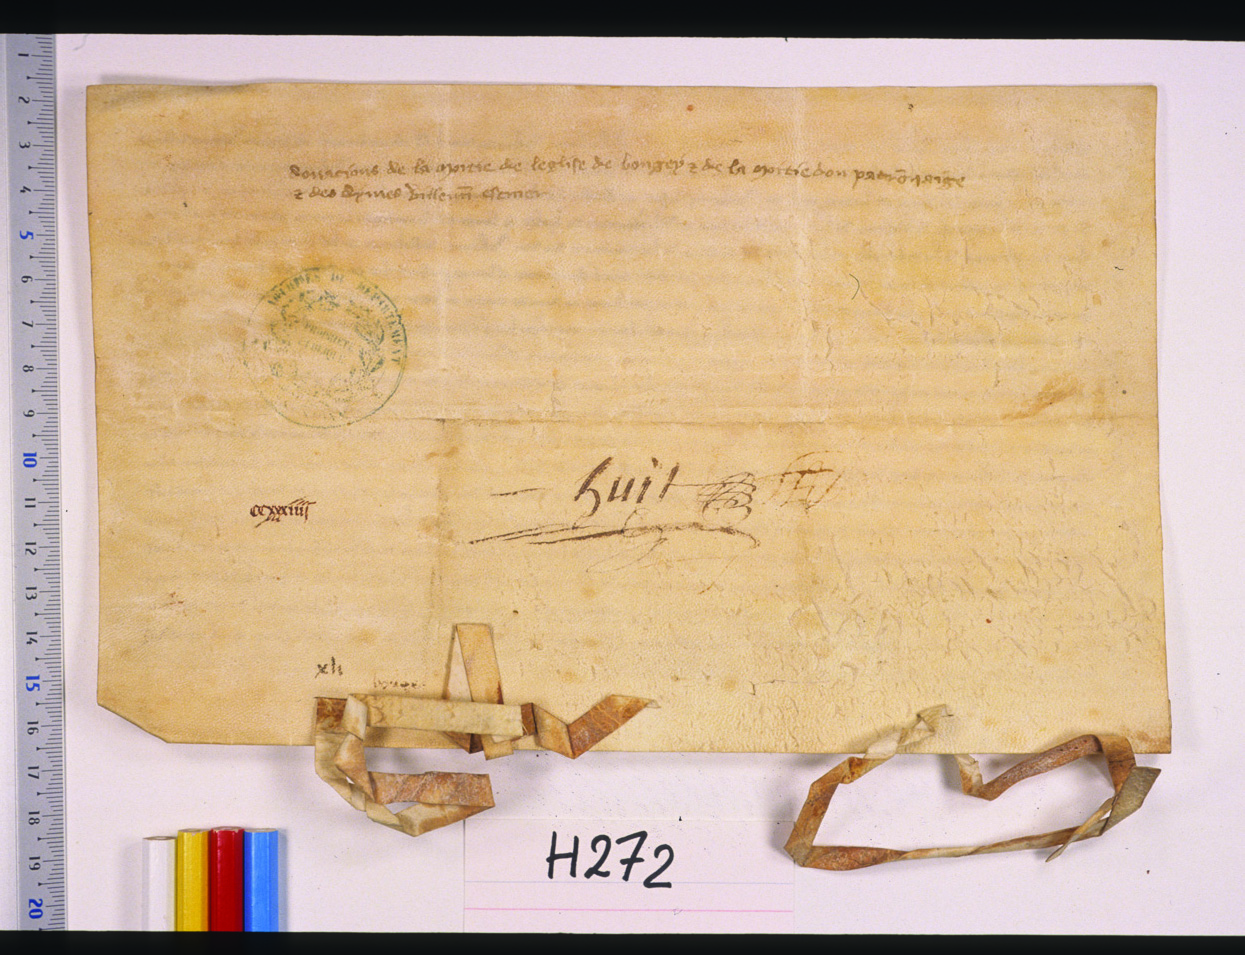 donacions de la moitie de leglise de bongey & de la moitie don patronaige
& des dymes
ARCHIVES DU DEPARTEMENT
PROPRIÉTÉ
PUBLIQUE
huit
ccxxxiiii
xli
H272
1
2
3
4
5
6
7
8
9
10
11
12
13
14
15
16
17
18
19
20